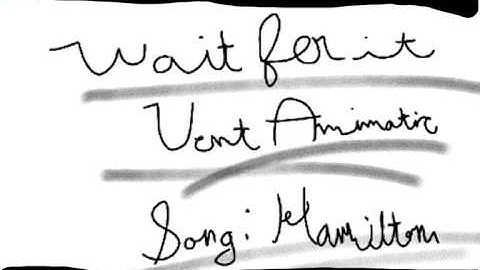 Wait for it
Vent Animatic
Song: Hamilton